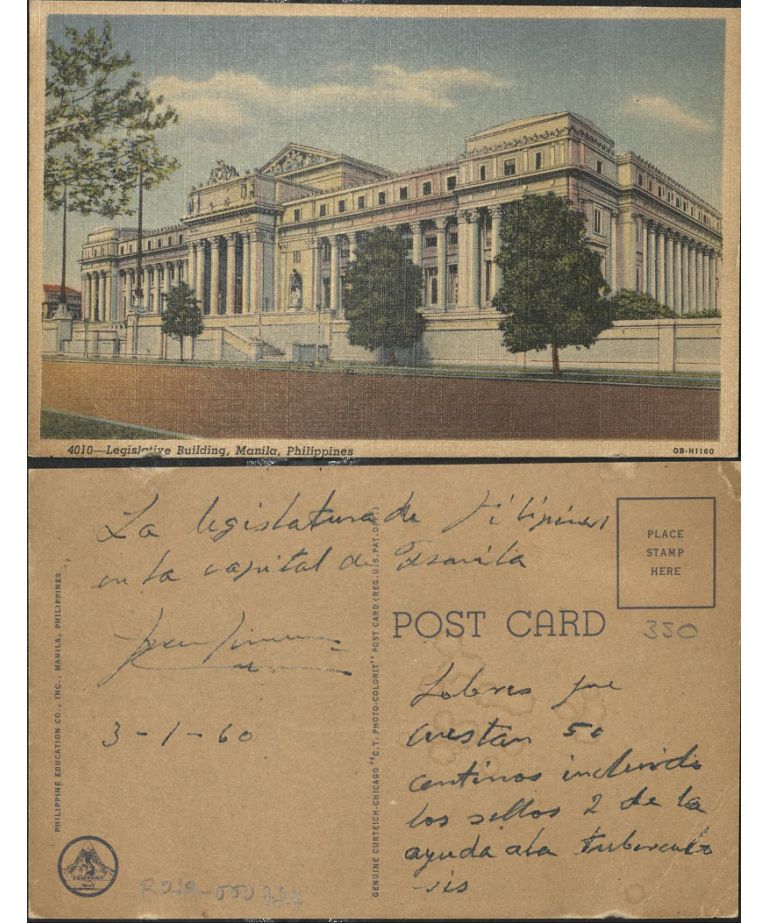 4010—Legislative Building, Manila, Philippines
OB-H1160
La legislatura de Filipinas
en la capital de Manila
3-1-60
PLACE
STAMP
HERE
POST CARD
350
Sobres que
cuestan 50
centinos incluido
los sellos 2 de la
ayuda a la tubercolo
-sis
PHILIPPINE EDUCATION CO., INC., MANILA, PHILIPPINES
GENUINE CURTEICH-CHICAGO "C.T. PHOTO-COLORIT" POST CARD (REG. U.S. PAT. OFF.)